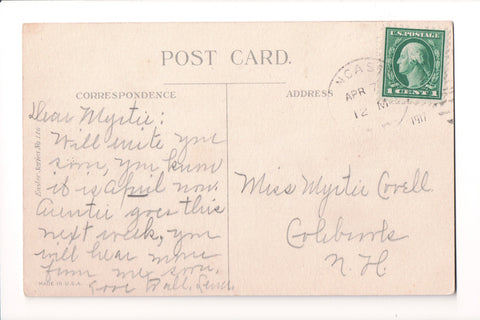 POST CARD.
CORRESPONDENCE
ADDRESS
U.S. POSTAGE
1 CENT 1
NCAS
APR 7
12 M
191
Dear Myrtie:
Will write you
soon, you know
it is April now.
Auntie goes this
next week, you
will hear more
from me soon.
Miss Myrtie Covell
Colebrook
N.H.
Easter Series No.
MADE IN U.S.A.